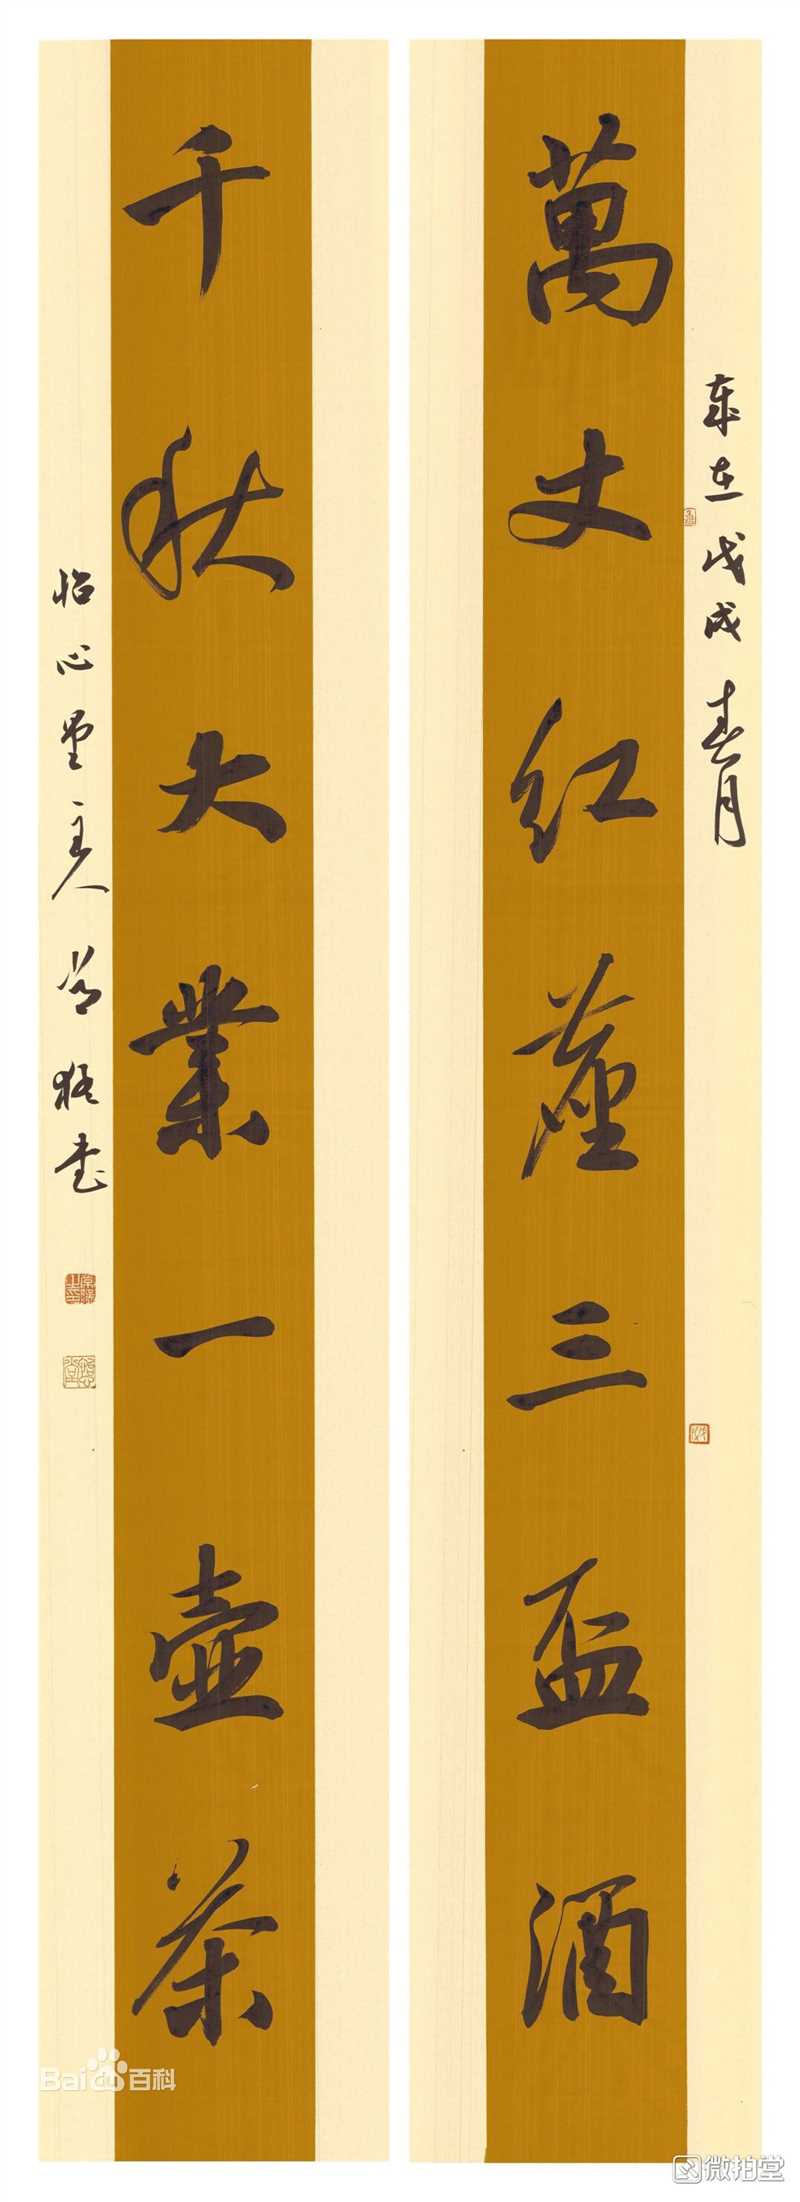 歲在戊戌春月
萬丈紅塵三盃酒
千秋大業一壺茶
怡心堂主人
書
Baidu百科
微拍堂